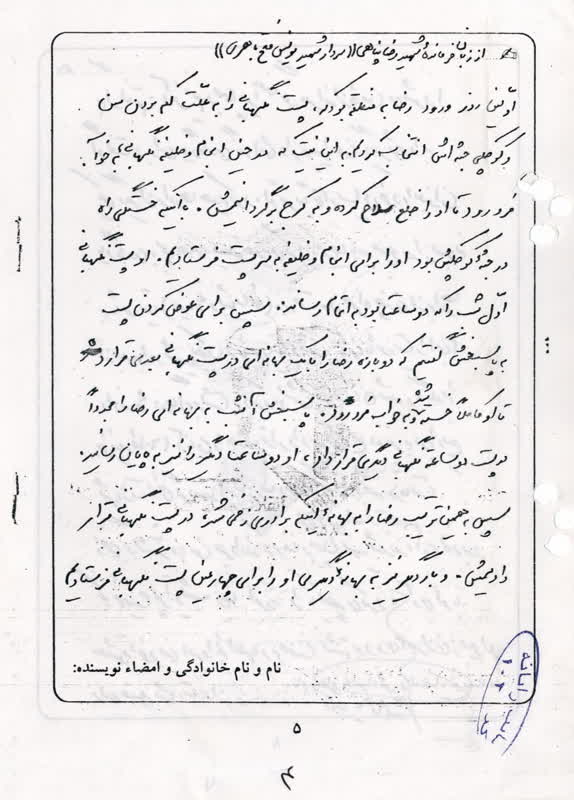 از زبان فرمانده شهید رضا پناهی ((سردار شهید یونس فتح باهری))
اولین روز ورود رضا به منطقه بود که، پست نگهبانی را به علت کم بودن سن
و کوچکی جثه اش انتخاب کردیم. به این نیت که در حین انجام وظیفه نگهبانی به خواب
فرو رود تا او را خلع سلاح کرده و به کرج برگردانیمش. با اینکه خستگی راه
در جثه کوچکش بود او را برای انجام وظیفه به سر پست فرستادیم. او پست نگهبانی
اول شب را که دو ساعت بود به اتمام رساند. سپس برای عوض کردن پست
به پاسبخش گفتیم که دوباره رضا را با یک بهانه ای در پست نگهبانی بعدی قرار دهد
تا او کاملاً خسته شده و به خواب فرو رود. پاسبخش آن شب به بهانه ای رضا را مجدداً
در پست دو ساعته نگهبانی دیگری قرار داد، او دو ساعت دیگر را نیز به پایان رساند.
سپس به همین ترتیب رضا را به بهانه اینکه برادری زخمی شده در پست نگهبانی قرار
دادیمش. و بار دیگر نیز به بهانه دیگری او را برای چهارمین پست نگهبانی فرستادیم
نام و نام خانوادگی و امضاء نویسنده:
۵
۴